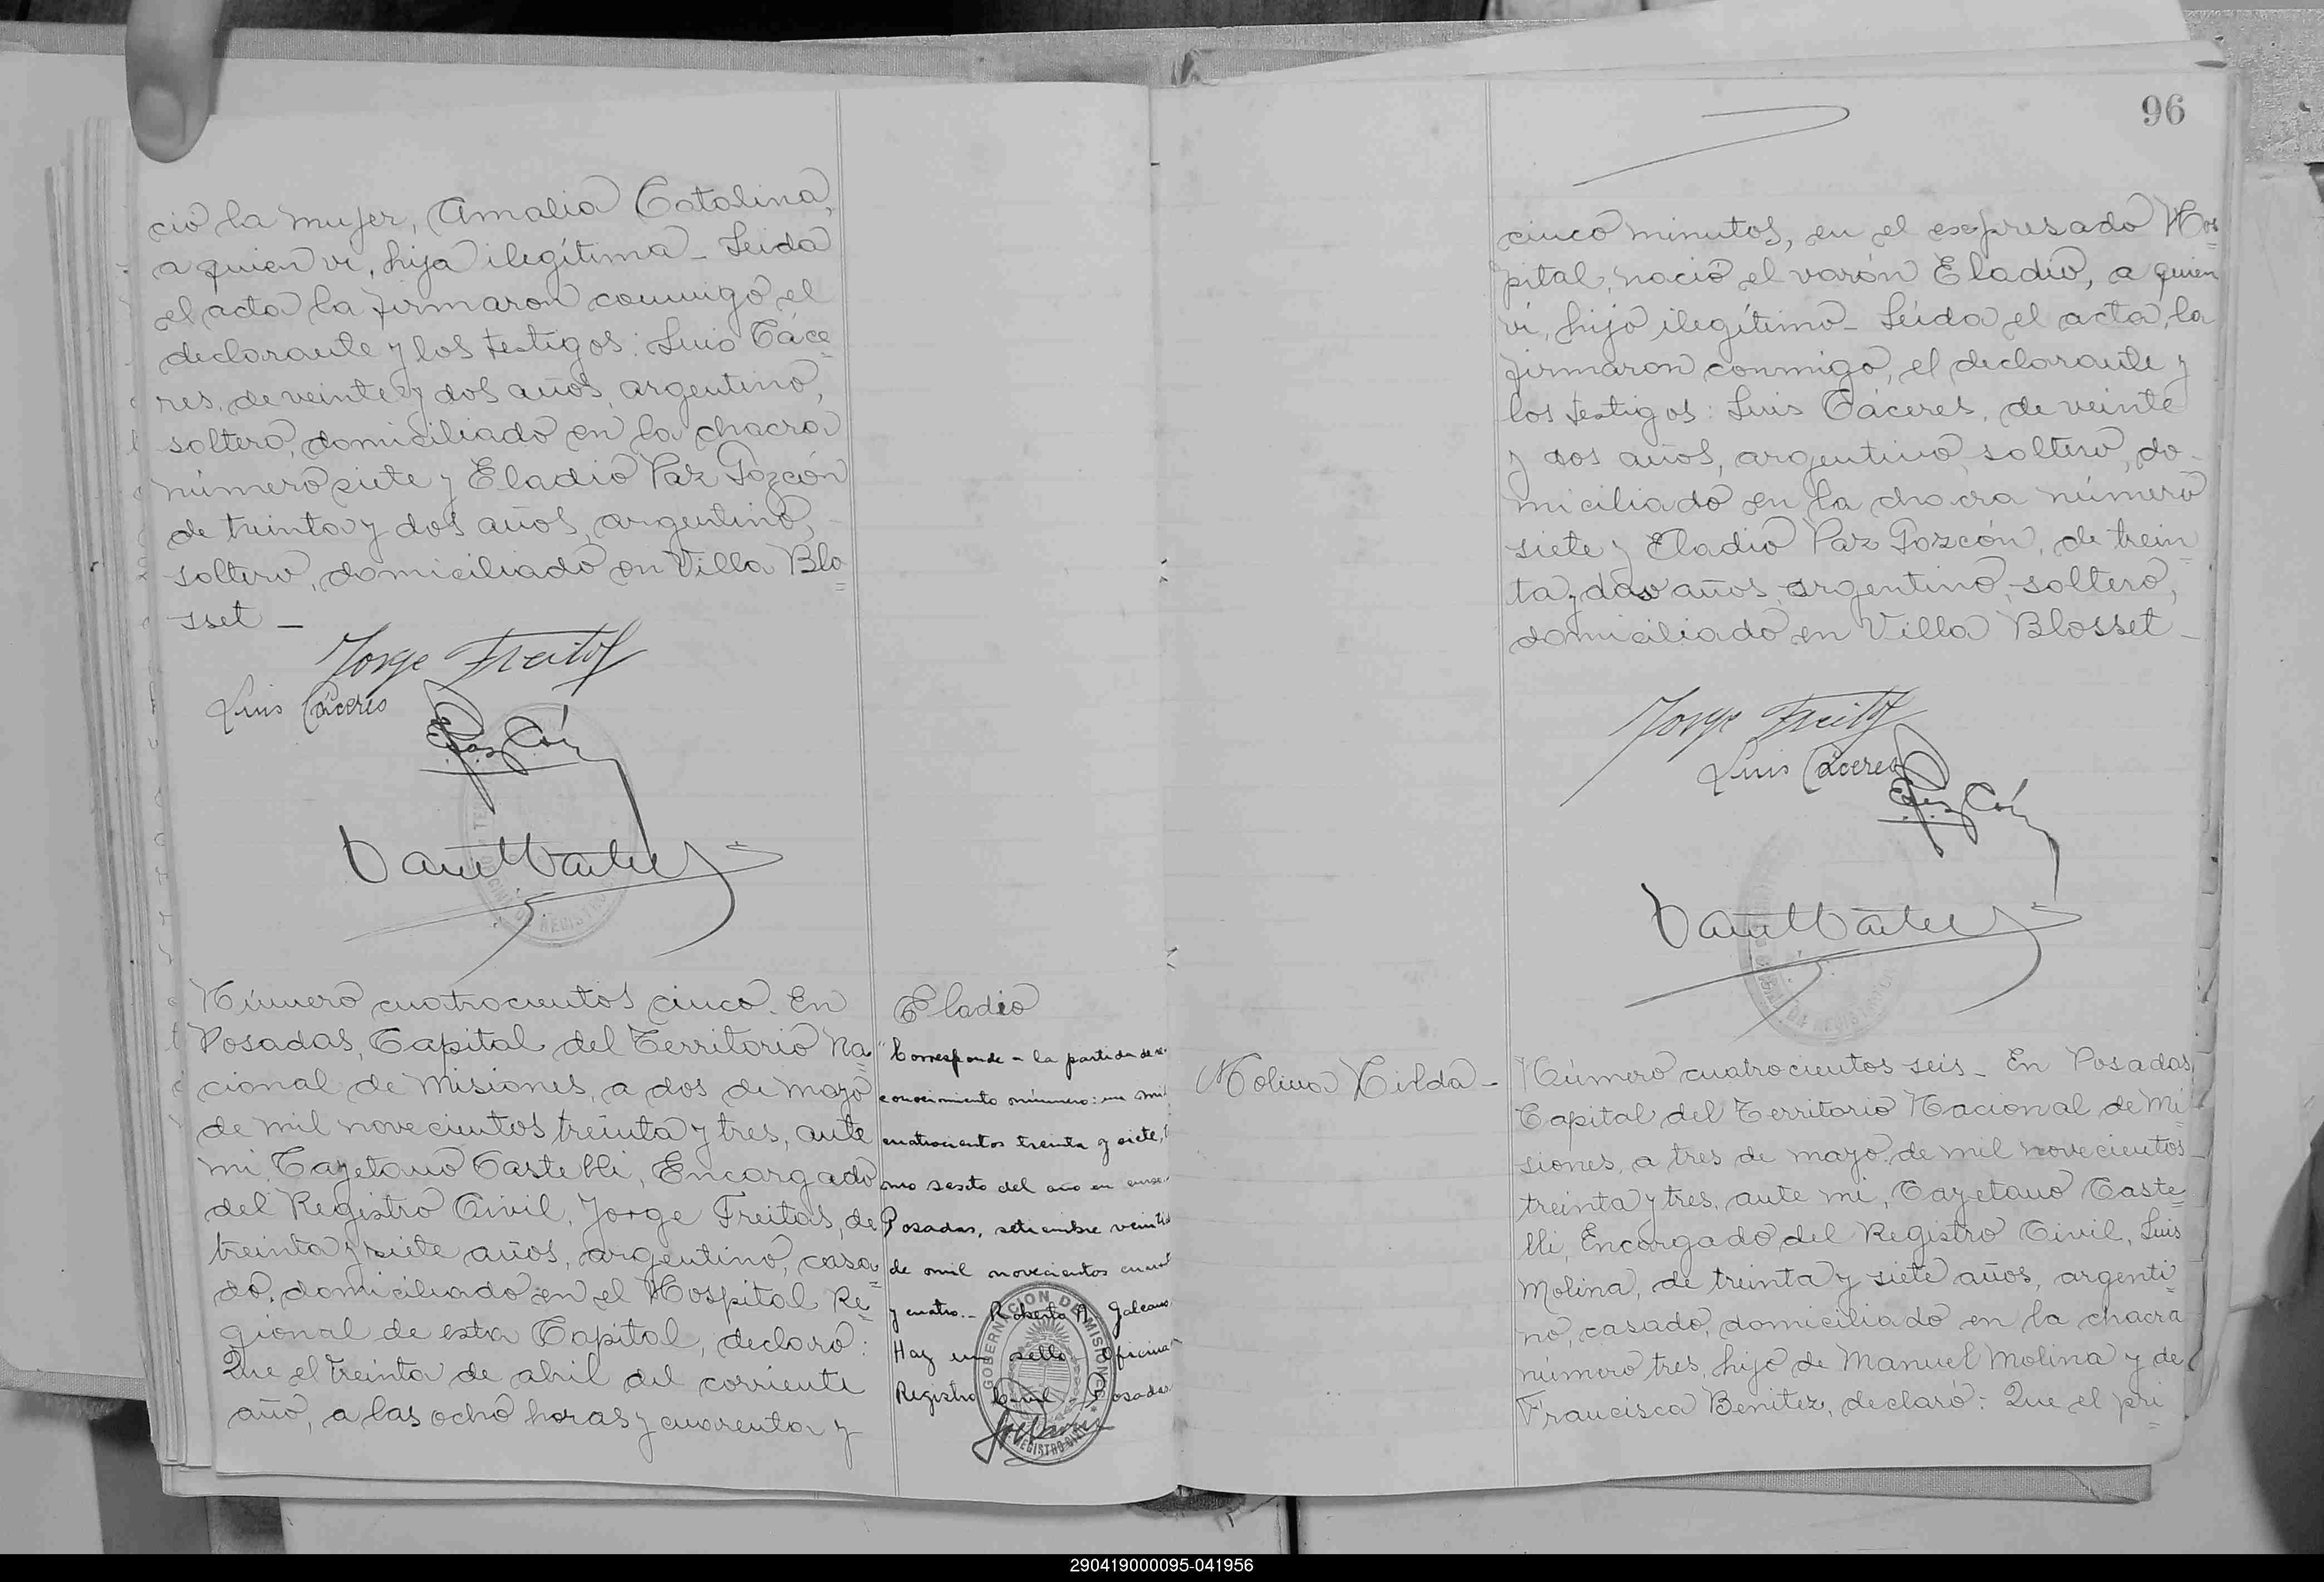 ció la mujer, Amalia Catalina,
a quien vi, hija ilegítima - Leida
el acta la firmaron conmigo el
declarante y los testigos: Luis Cáce=
res, de veinte y dos años, argentino,
soltero, domiciliado en la chacra
número siete y Eladio Paz
de treinta y dos años, argentino,
soltero, domiciliado en Villa Blo=
sset -
Jorge Freitas
Luis Cáceres
Número cuatrocientos cinco. En
Posadas, Capital del Territorio Na=
cional de Misiones, a dos de mayo
de mil novecientos treinta y tres, ante
mi, Cayetano Castelli, Encargado
del Registro Civil, Jorge Freitas, de
treinta y siete años, argentino, casa=
do, domiciliado en el Hospital Re=
gional de esta Capital, declaró:
Que el treinta de abril del corriente
año, a las ocho horas y cuarenta y
Eladio
"Corresponde a la partida de re
conocimiento número: un mil
cuatrocientos treinta y siete, t
mo sexto del año en curso
Posadas, setiembre veintid
de mil novecientos cuare
y cuatro.- Roberto Galeano
Hay un sello Oficina
Registro Civil Posadas
GOBERNACION DE MISIONES
REGISTRO CIVIL
96
cinco minutos, en el expresado Hos=
pital, nació el varón Eladio, a quien
vi, hijo ilegítimo - Leida el acta, la
firmaron conmigo, el declarante y
los testigos: Luis Cáceres, de veinte
y dos años, argentino, soltero, do-
miciliado en la chacra número
siete y Eladio Paz, de trein=
ta y dos años, argentino, soltero,
domiciliado en Villa Blosset -
Jorge Freitas
Luis Cáceres
Molina Hilda -
Número cuatrocientos seis - En Posadas,
Capital del Territorio Nacional de Mi=
siones, a tres de mayo de mil novecientos
treinta y tres, ante mi, Cayetano Caste=
lli, Encargado del Registro Civil, Luis
Molina, de treinta y siete años, argenti=
no, casado, domiciliado en la chacra
número tres, hijo de Manuel Molina y de
Francisca Benitez, declaró: Que el pri=
290419000095-041956